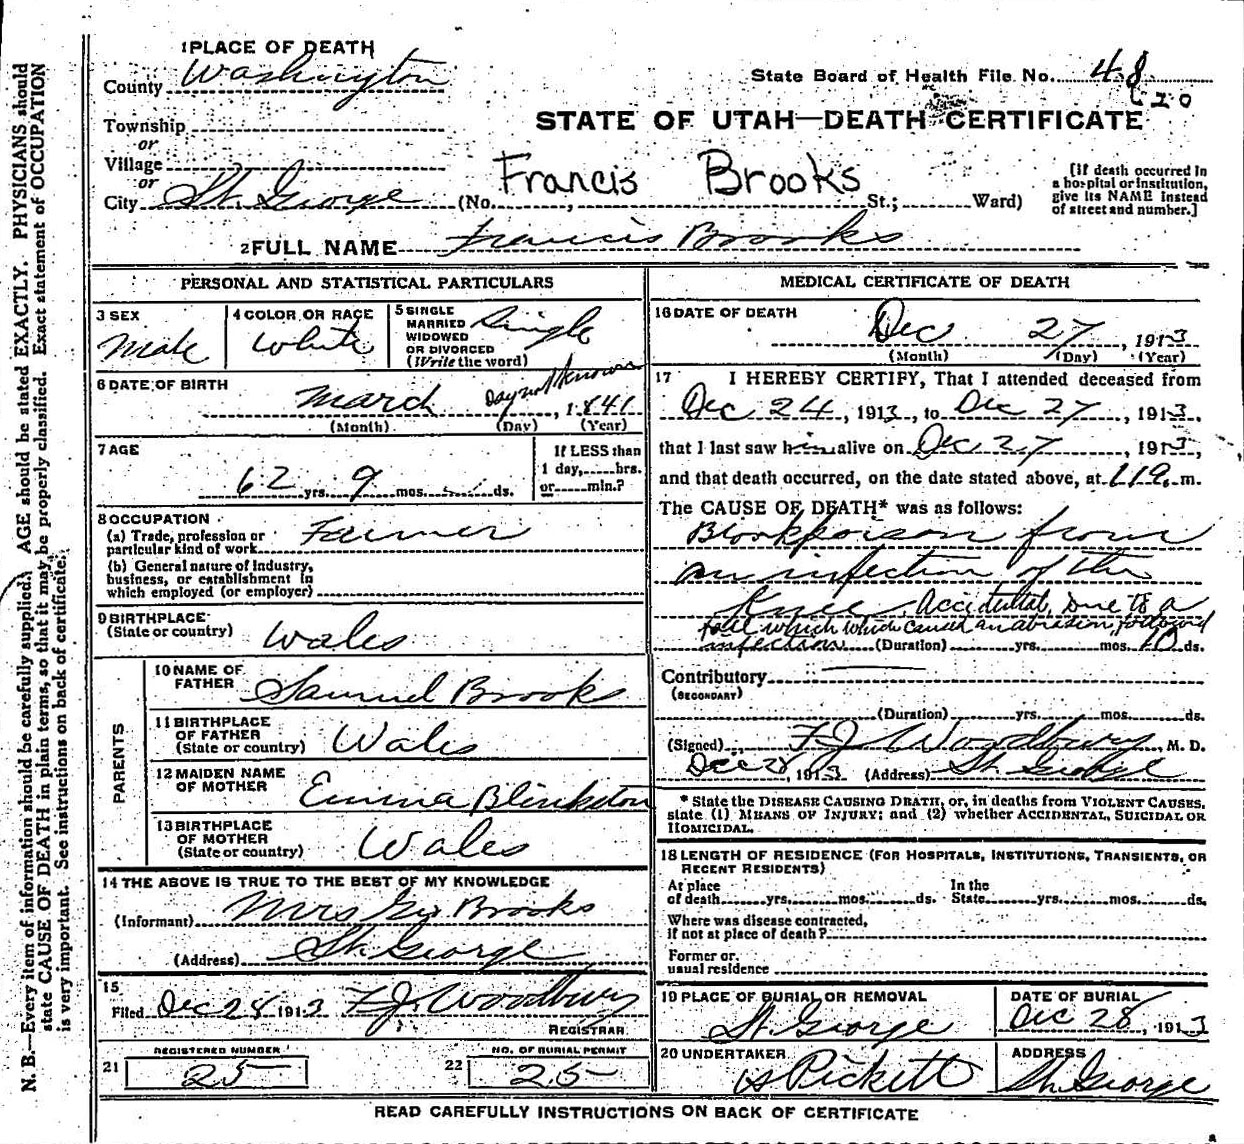 1 PLACE OF DEATH
County Washington
State Board of Health File No. 48
620
Township
or
Village
or
City St. George
STATE OF UTAH—DEATH CERTIFICATE
Francis Brooks
(No. , St.; Ward)
[If death occurred in
a hospital or institution,
give its NAME instead
of street and number.]
2 FULL NAME Francis Brooks
PERSONAL AND STATISTICAL PARTICULARS
3 SEX
Male
4 COLOR OR RACE
White
5 SINGLE
MARRIED
WIDOWED
OR DIVORCED
(Write the word)
Single
6 DATE OF BIRTH
March Day not known, 1841
(Month) (Day) (Year)
7 AGE
62 yrs. 9 mos. ds.
If LESS than
1 day, hrs.
or min.?
8 OCCUPATION
(a) Trade, profession or
particular kind of work
Farmer
(b) General nature of Industry,
business, or establishment in
which employed (or employer)
9 BIRTHPLACE
(State or country)
Wales
PARENTS
10 NAME OF
FATHER
Samuel Brooks
11 BIRTHPLACE
OF FATHER
(State or country)
Wales
12 MAIDEN NAME
OF MOTHER
Emma Blinkston
13 BIRTHPLACE
OF MOTHER
(State or country)
Wales
14 THE ABOVE IS TRUE TO THE BEST OF MY KNOWLEDGE
(Informant) Mrs Geo Brooks
(Address) St. George
15
Filed Dec 28 1913 F. J. Woodbury
REGISTRAR
REGISTERED NUMBER
21 25
NO. OF BURIAL PERMIT
22 25
MEDICAL CERTIFICATE OF DEATH
16 DATE OF DEATH
Dec 27, 1913
(Month) (Day) (Year)
17 I HEREBY CERTIFY, That I attended deceased from
Dec 24, 1913, to Dec 27, 1913,
that I last saw him alive on Dec 27, 1913,
and that death occurred, on the date stated above, at m.
The CAUSE OF DEATH* was as follows:
Bloodpoison from
an infection of the
Knee Accidental, Due to a
fall which which caused an abrasion, followed
infection (Duration) yrs. mos. 10 ds.
Contributory
(SECONDARY)
(Duration) yrs. mos. ds.
(Signed) F. J. Woodbury, M. D.
Dec 28, 1913 (Address) St. George
* State the DISEASE CAUSING DEATH, or, in deaths from VIOLENT CAUSES,
state (1) MEANS OF INJURY; and (2) whether ACCIDENTAL, SUICIDAL OR
HOMICIDAL.
18 LENGTH OF RESIDENCE (FOR HOSPITALS, INSTITUTIONS, TRANSIENTS, OR
RECENT RESIDENTS)
At place
of death yrs. mos. ds.
In the
State yrs. mos. ds.
Where was disease contracted,
if not at place of death?
Former or
usual residence
19 PLACE OF BURIAL OR REMOVAL
St. George
DATE OF BURIAL
Dec 28, 1913
20 UNDERTAKER
Pickett
ADDRESS
St. George
READ CAREFULLY INSTRUCTIONS ON BACK OF CERTIFICATE
N. B.—Every item of information should be carefully supplied. AGE should be stated EXACTLY. PHYSICIANS should
state CAUSE OF DEATH in plain terms, so that it may be properly classified. Exact statement of OCCUPATION
is very important. See instructions on back of certificate.